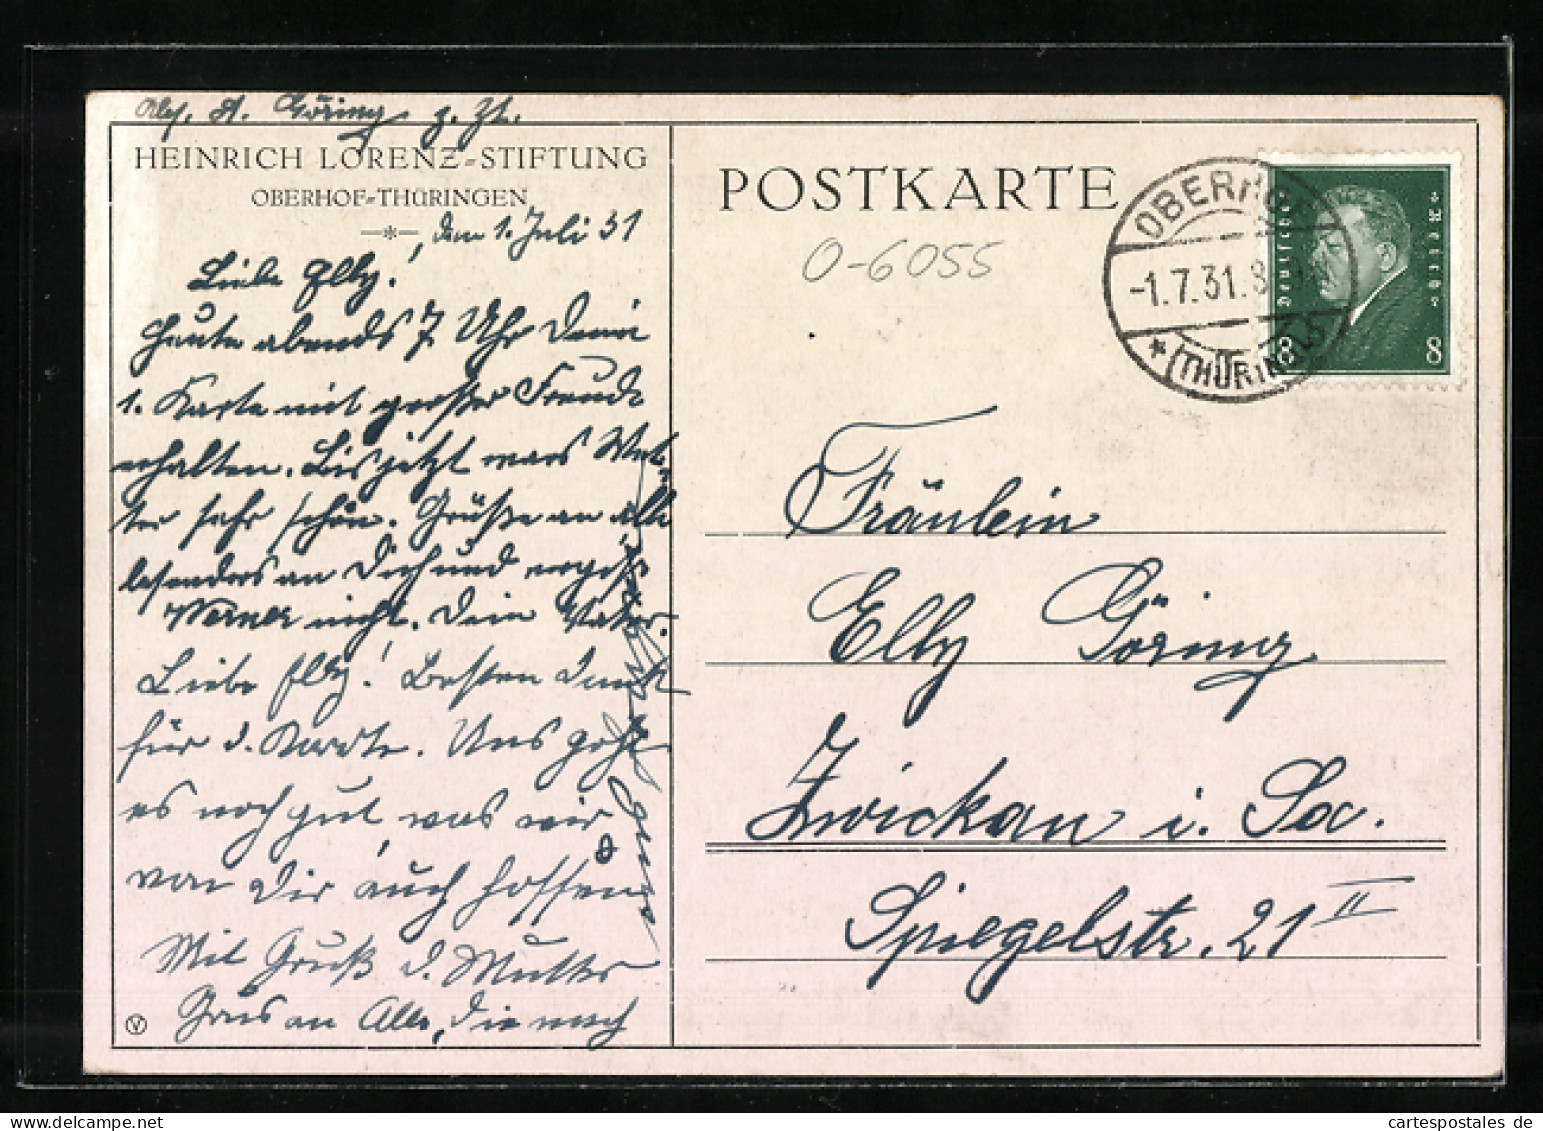 Abs. A. Göring z. Zt.
HEINRICH LORENZ-STIFTUNG
OBERHOF-THÜRINGEN
, den 1. Juli 31
Liebe Elly!
Heute abends 7 Uhr Deine
1. Karte mit großer Freude
erhalten. Bis jetzt wars Wet-
ter sehr schön. Grüße an alle
besonders an Dich und vergiß
Werner nicht. Dein Vater.
Liebe Elly! Besten Dank
für d. Karte. Uns geht
es noch gut, was wir
von Dir auch hoffen
Mit Gruß d. Mutter
Grus an Alle, die nach
V
POSTKARTE
O-6055
OBERHOF
-1.7.31.8
* (THÜRING
Deutsches Reich
8 8
Fräulein
Elly Göring
Zwickau i. Sa.
Spiegelstr. 21 II
cartespostales de